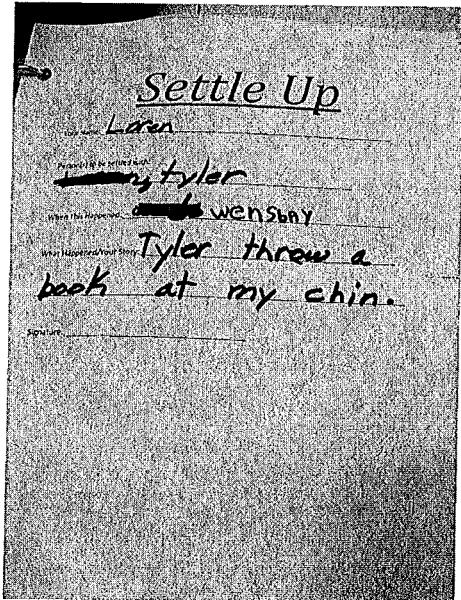 Settle Up
Your Name: Loren
Person(s) to be settled with:
tyler
When this Happened: wensbay
What Happened/Your Story: Tyler threw a
book at my chin.
Signature: